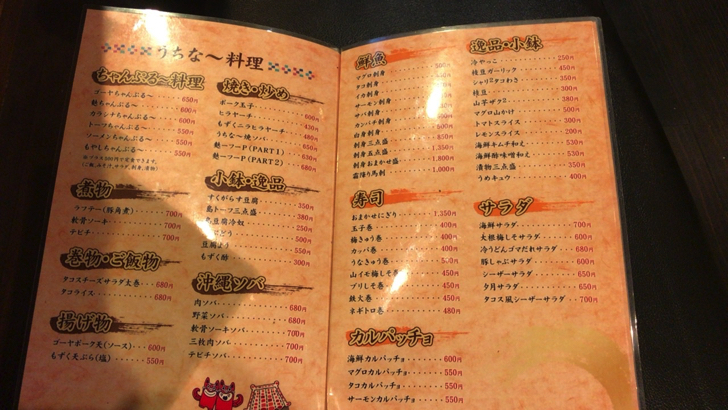 うちな〜料理
ちゃんぷる〜料理
ゴーヤちゃんぷる〜 650円
麩ちゃんぷる〜 600円
カラシナちゃんぷる〜 600円
トーフちゃんぷる〜 550円
ソーメンちゃんぷる〜 550円
もやしちゃんぷる〜 550円
煮物
ラフテー(豚角煮) 700円
軟骨ソーキ 700円
テビチ 700円
巻物・ご飯物
タコスチーズサラダ太巻 680円
タコライス 680円
揚げ物
ゴーヤポーク天(ソース) 600円
もずく天ぷら(塩) 550円
焼き・炒め
ポーク玉子
ヒラヤーチ
もずくニラヒラヤーチ 480円
うちな〜焼ソバ
麩ーフーP(PART1) 630円
麩ーフーP(PART2) 680円
小鉢・逸品
すくがらす豆腐 350円
島トーフ三点盛 380円
豆腐冷奴 250円
500円
豆腐よう 550円
もずく酢 300円
沖縄ソバ
肉ソバ 680円
野菜ソバ 680円
軟骨ソーキソバ 700円
三枚肉ソバ 700円
テビチソバ 700円
鮮魚
マグロ刺身
タコ刺身
イカ刺身
サーモン刺身
サバ刺身
カンパチ刺身
白身刺身
刺身三点盛 850円
刺身五点盛 1,350円
刺身おまかせ盛 1,800円
霜降り馬刺 1,000円
寿司
おまかせにぎり 1,350円
玉子巻 400円
梅きゅう巻 400円
カッパ巻 400円
うなきゅう巻
山イモ梅しそ巻 400円
ブリしそ巻 450円
鉄火巻 450円
ネギトロ巻 480円
カルパッチョ
海鮮カルパッチョ 600円
マグロカルパッチョ 550円
タコカルパッチョ 550円
サーモンカルパッチョ 550円
逸品・小鉢
冷やっこ 250円
枝豆ガーリック 450円
350円
枝豆 300円
380円
マグロ山かけ 500円
トマトスライス 300円
レモンスライス 200円
海鮮キムチ和え 530円
海鮮酢味噌和え 530円
漬物三点盛 350円
うめキュウ 400円
サラダ
海鮮サラダ 700円
大根梅しそサラダ 600円
冷うどんゴマだれサラダ 680円
豚しゃぶサラダ 600円
シーザーサラダ 650円
夕月サラダ 650円
タコス風シーザーサラダ 700円